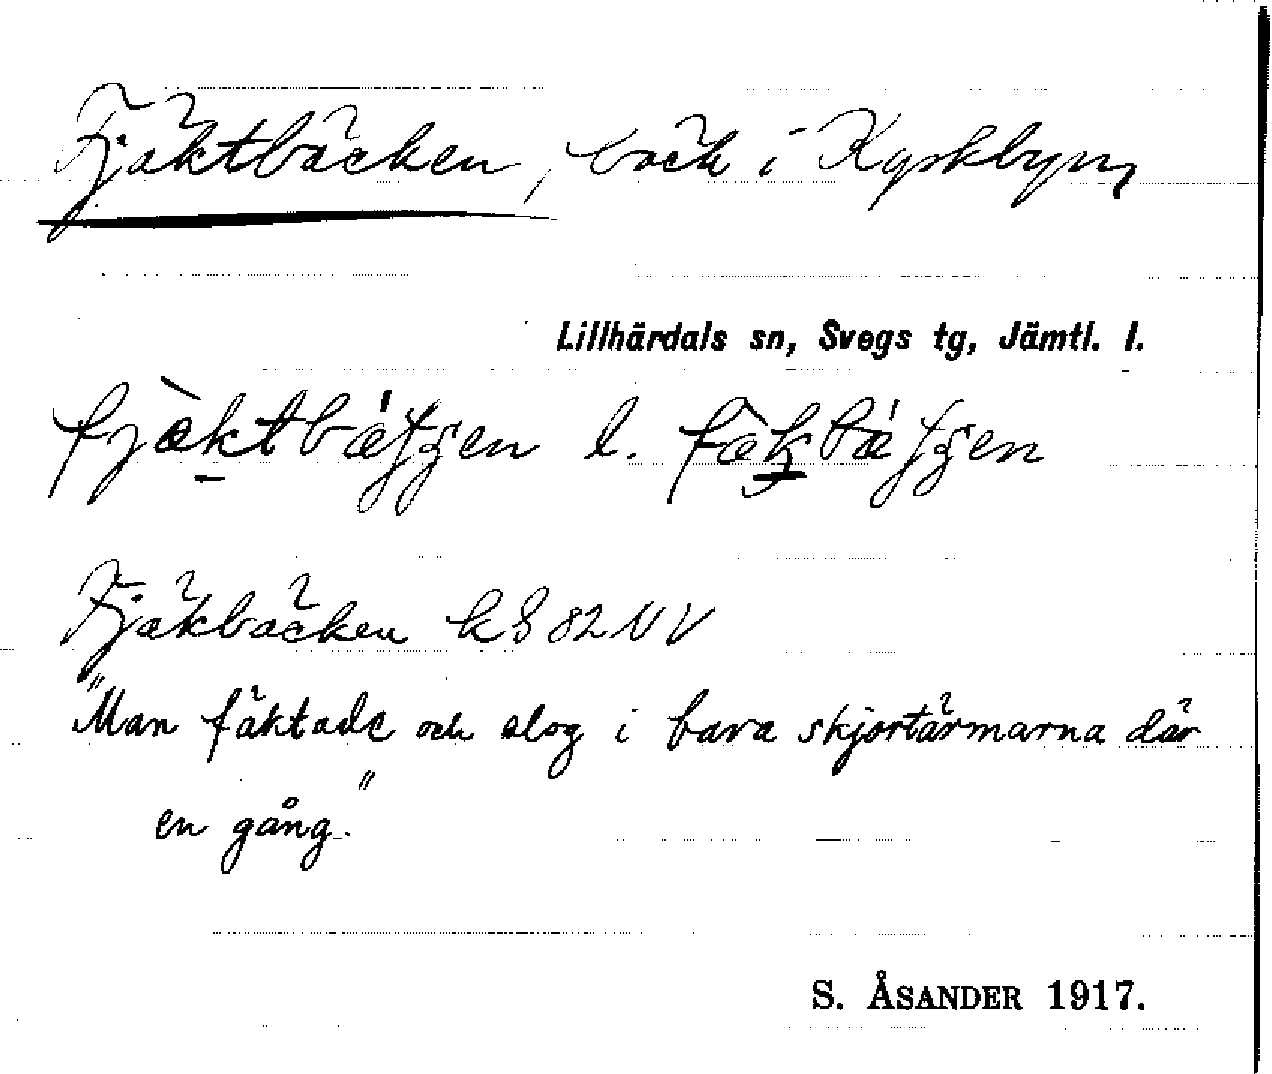 Fjäktbäcken, bäck i Kyrkbyn,
Lillhärdals sn, Svegs tg, Jämtl. l.
fjæktbæʃʒen l. fækbæʃʒen
Fjäkbäcken k S 82 NV
"Man fäktade och slog i bara skjortärmarna där
en gång."
S. ÅSANDER 1917.